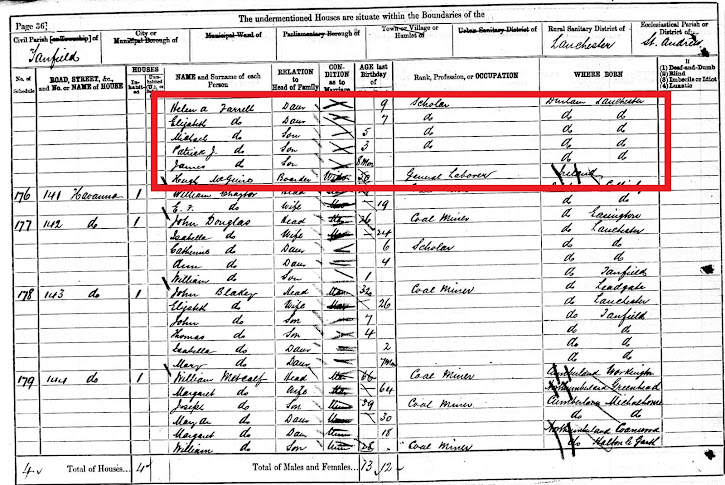 The undermentioned Houses are situate within the Boundaries of the
Page 36]
Civil Parish [or Township] of
Tanfield
City or Municipal Borough of
Municipal Ward of
Parliamentary Borough of
Town or Village or Hamlet of
Urban Sanitary District of
Rural Sanitary District of
Lanchester
Ecclesiastical Parish or District of
St. Andrew
No. of Schedule
ROAD, STREET, &c., and No. or NAME of HOUSE
HOUSES
Inhabited
NAME and Surname of each Person
RELATION to Head of Family
CONDITION as to Marriage
AGE last Birthday of
Rank, Profession, or OCCUPATION
WHERE BORN
If
(1) Deaf-and-Dumb
(2) Blind
(3) Imbecile or Idiot
(4) Lunatic
Helen a Farrell Daur 9 Scholar Durham Lanchester
Elizabeth do Daur 7 do do do
Michael do Son 5 do do do
Patrick J. do Son 3 do do do
James do Son 8 Mos do do
Hugh McGuire Boarder General Laborer Ireland
176 141 Havanna 1 William Chaytor Head
E. do Wife 19 do do
177 142 do 1 John Douglas Head 26 Coal Miner do Easington
Isabella do Wife 24 do Lanchester
Catherine do Daur 6 Scholar do do
Ann do Daur 4 do do
William do Son 1 do Tanfield
178 143 do 1 John Blakey Head 32 Coal Miner do Leadgate
Elizabeth do Wife 26 do Lanchester
John do Son 7 do Tanfield
Thomas do Son 4 do do
Isabella do Daur 2 do do
Mary do Daur 7 Mos do do
179 144 do 1 William Metcalf Head 66 Coal Miner Cumberland Workington
Margaret do Wife 64 Northumberland Greenhead
Joseph do Son 39 Coal Miner Cumberland
Mary An do Daur 30 do do
Margaret do Daur 18 Northumberland Coanwood
William do Son 28 Coal Miner do
4 Total of Houses... 4 Total of Males and Females... 13 12